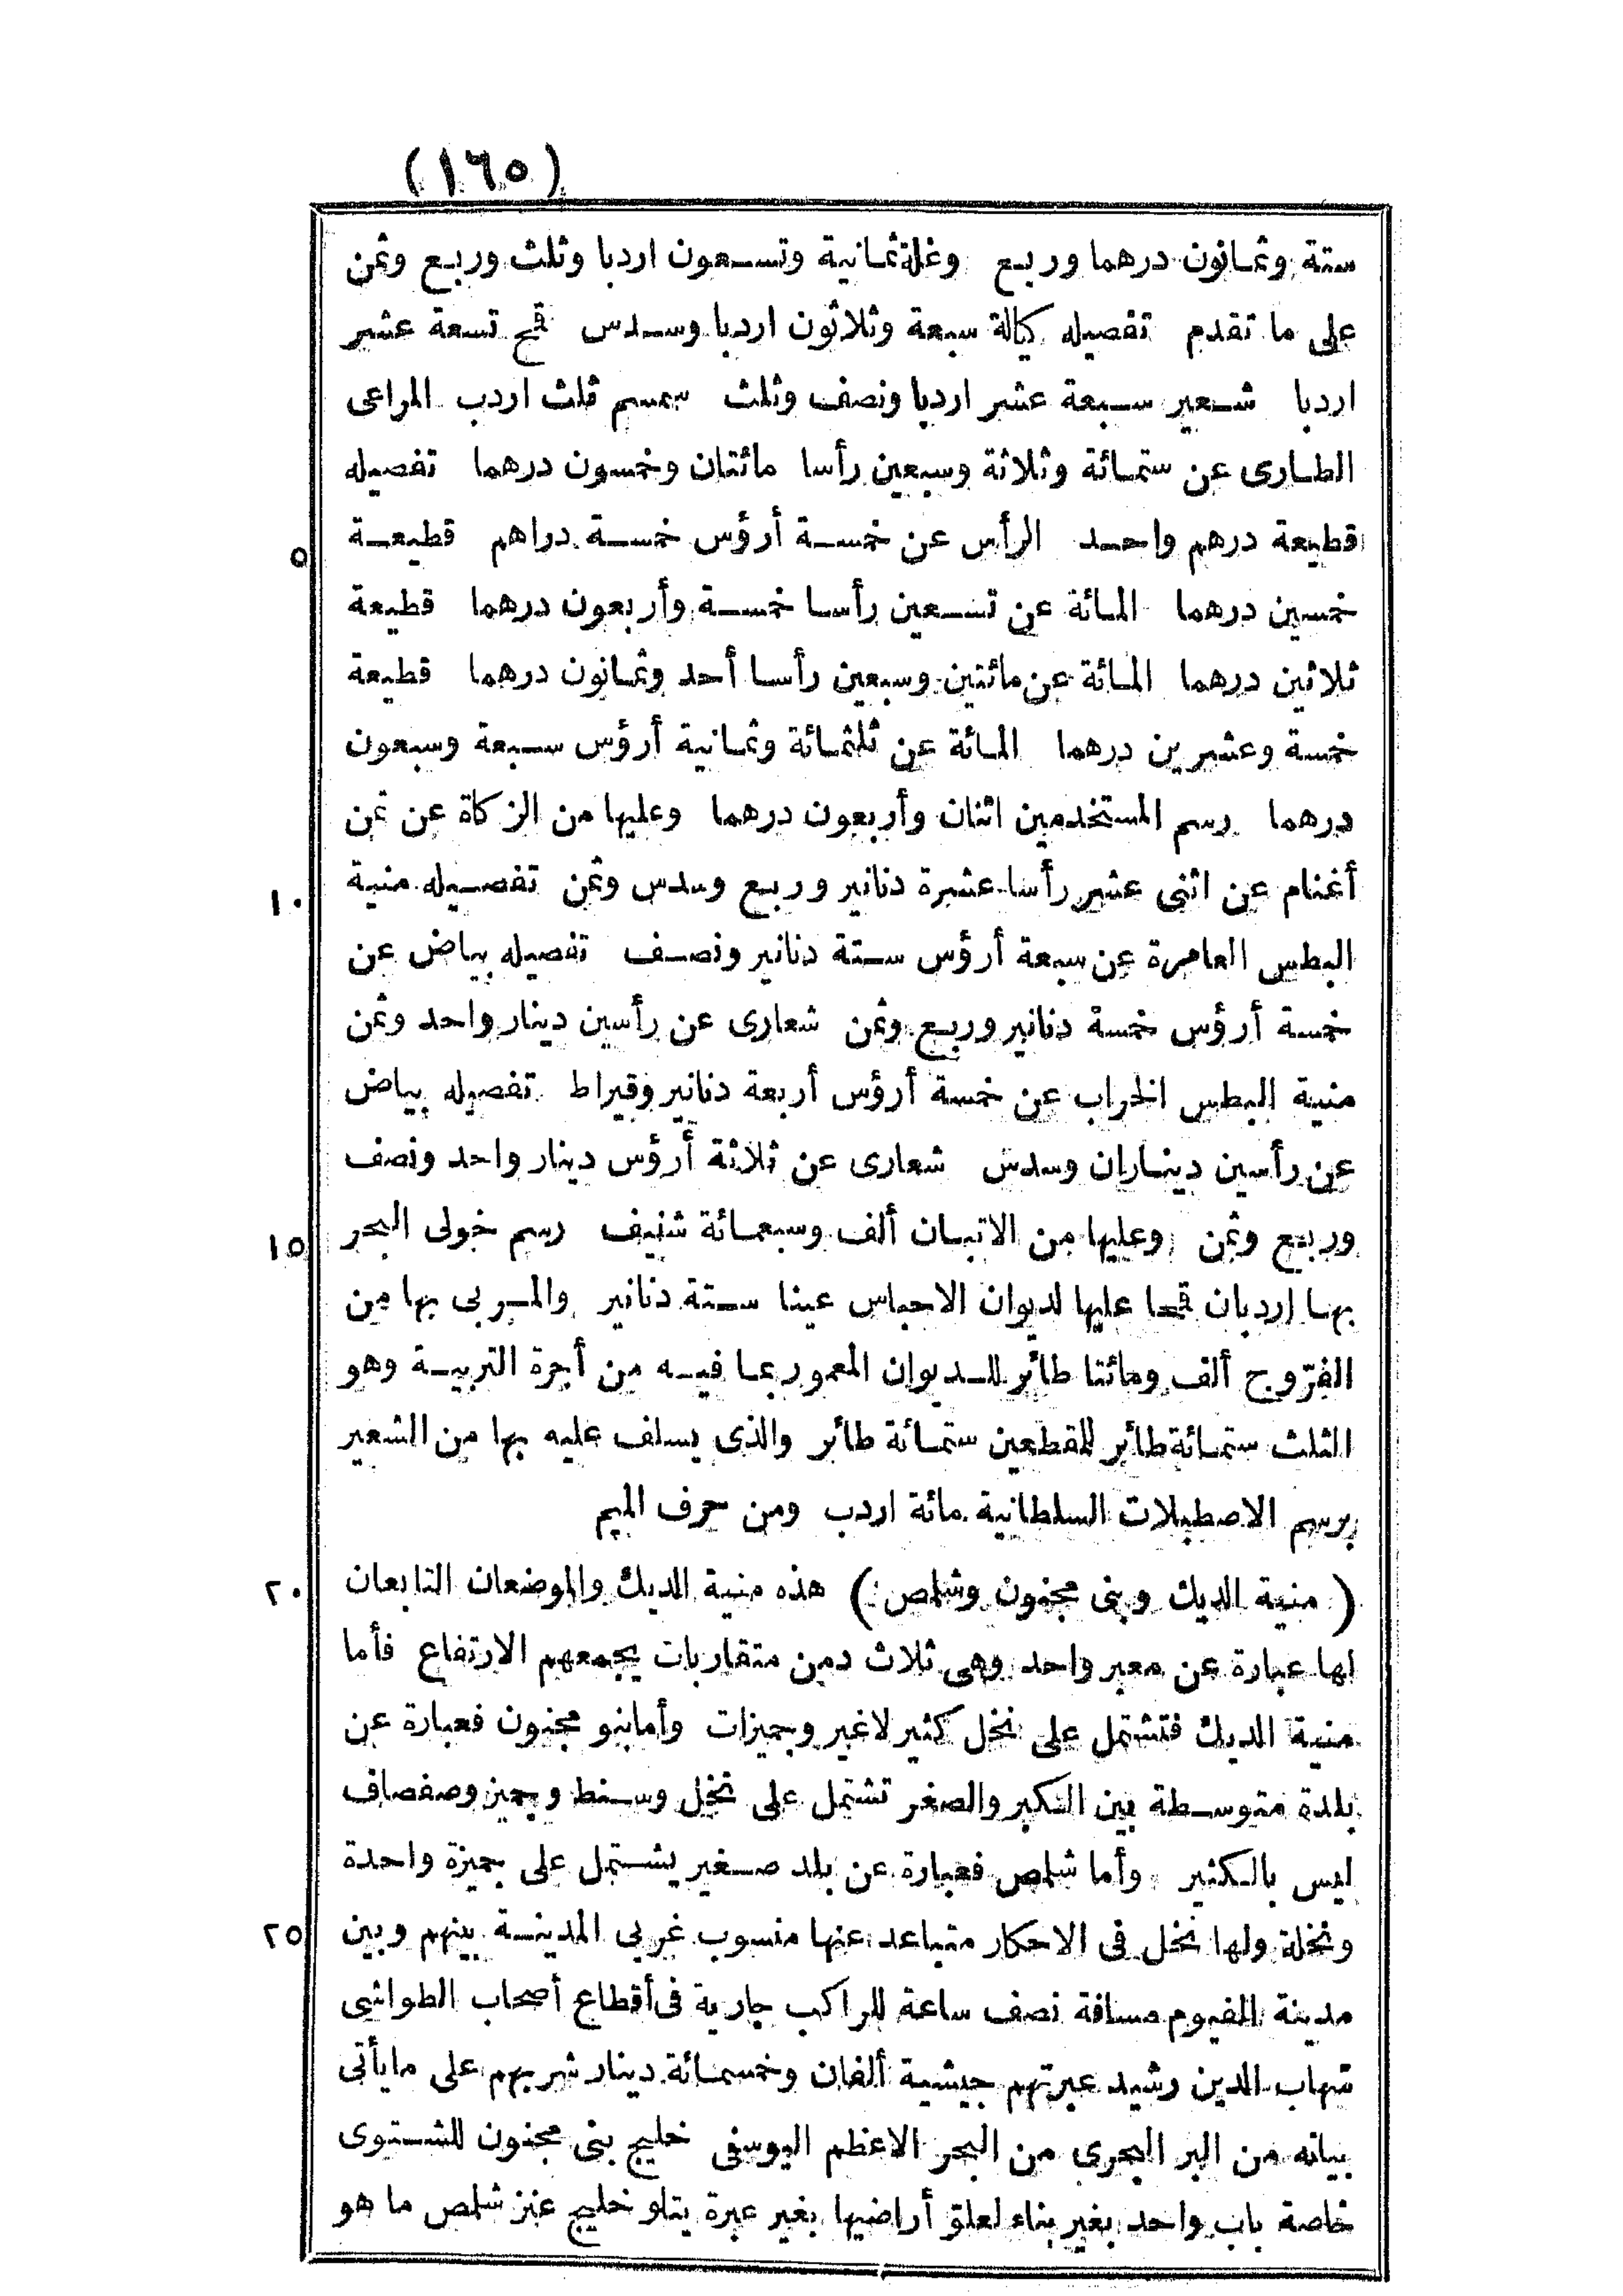 (١٦٥)
ستة وثمانون درهما وربع وغلة ثمانية وتسعون اردبا وثلث وربع وثمن
على ما تقدم تفصيله كيالة سبعة وثلاثون اردبا وسدس قمح تسعة عشر
اردبا شعير سبعة عشر اردبا ونصف وثلث سمسم ثلث اردب المراعى
الطارى عن ستمائة وثلاثة وسبعين رأسا مائتان وخمسون درهما تفصيله
قطيعة درهم واحد الرأس عن خمسة أرؤس خمسة دراهم قطيعة
٥
خمسين درهما المائة عن تسعين رأسا خمسة وأربعون درهما قطيعة
ثلاثين درهما المائة عن مائتين وسبعين رأسا أحد وثمانون درهما قطيعة
خمسة وعشرين درهما المائة عن ثلثمائة وثمانية أرؤس سبعة وسبعون
درهما رسم المستخدمين اثنان وأربعون درهما وعليها من الزكاة عن ثمن
أغنام عن اثنى عشر رأسا عشرة دنانير وربع وسدس وثمن تفصيله منية
١٠
البطس العامرة عن سبعة أرؤس ستة دنانير ونصف تفصيله بياض عن
خمسة أرؤس خمسة دنانير وربع وثمن شعارى عن رأسين دينار واحد وثمن
منية البطس الخراب عن خمسة أرؤس أربعة دنانير وقيراط تفصيله بياض
عن رأسين ديناران وسدس شعارى عن ثلاثة أرؤس دينار واحد ونصف
وربع وثمن وعليها من الاتبان ألف وسبعمائة شنيف رسم خولى البحر
١٥
بها اردبان قمحا عليها لديوان الاحباس عينا ستة دنانير والمربى بها من
الفرّوج ألف ومائتا طائر للديوان المعمور بما فيه من أجرة التربية وهو
الثلث ستمائة طائر للمقطعين ستمائة طائر والذى يسلف عليه بها من الشعير
برسم الاصطبلات السلطانية مائة اردب ومن حرف الميم
(منية الديك وبنى مجنون وشلمص) هذه منية الديك والموضعان التابعان
٢٠
لها عبارة عن معبر واحد وهى ثلاث دمن متقاربات يجمعهم الارتفاع فأما
منية الديك فتشتمل على نخل كثير لاغير وجميزات وأما بنو مجنون فعبارة عن
بلدة متوسطة بين الكبر والصغر تشتمل على نخل وسنط وجميز وصفصاف
ليس بالكثير وأما شلمص فعبارة عن بلد صغير يشتمل على جميزة واحدة
ونخلة ولها نخل فى الاحكار متباعد عنها منسوب غربى المدينة بينهم وبين
٢٥
مدينة الفيوم مسافة نصف ساعة للراكب جارية فى أقطاع أصحاب الطواشى
شهاب الدين رشيد عبرتهم جيشية ألفان وخمسمائة دينار شربهم على ما يأتى
بيانه من البر البحرى من البحر الاعظم اليوسفى خليج بنى مجنون للشتوى
خاصة باب واحد بغير بناء لعلق أراضيها بغير عبرة يتلو خليج عنز شلمص ما هو